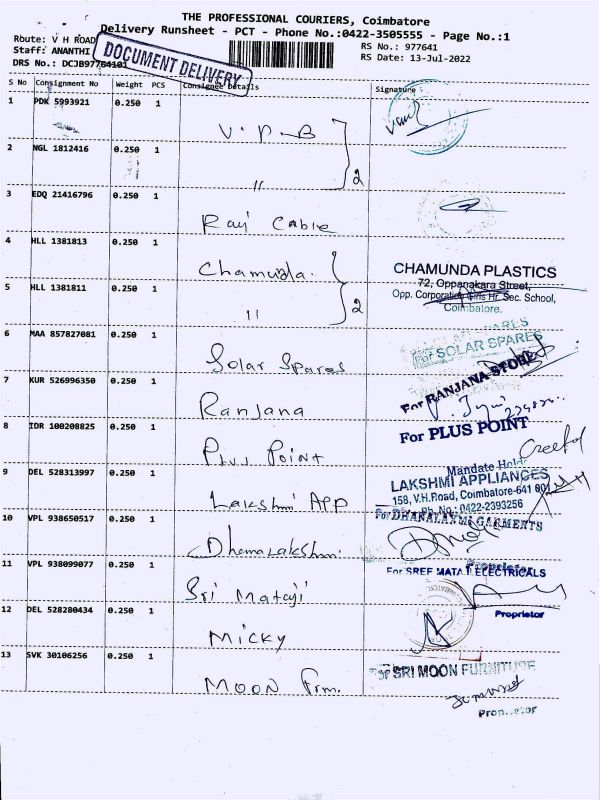 THE PROFESSIONAL COURIERS, Coimbatore
Delivery Runsheet - PCT - Phone No.:0422-3505555 - Page No.:1
Route: V H ROAD
RS No.: 977641
Staff: ANANTHI
RS Date: 13-Jul-2022
DRS No.: DCJB97764101
DOCUMENT DELIVERY
S No Consignment No Weight PCS Consignee Details Signature
1 PDK 5993921 0.250 1 V.P.B
2 NGL 1812416 0.250 1 " 2
3 EDQ 21416796 0.250 1 Ravi Cable
4 HLL 1381813 0.250 1 Chamunda.
5 HLL 1381811 0.250 1 " 2
CHAMUNDA PLASTICS
72, Oppanakara Street,
Opp. Corporation Girls Hr. Sec. School,
Coimbatore.
6 MAA 857827081 0.250 1 Solar Spares
For SOLAR SPARES
7 KUR 526996350 0.250 1 Ranjana
For RANJANA STORE
8 IDR 100208825 0.250 1 Plus Point
For PLUS POINT
9 DEL 528313997 0.250 1 Lakshmi App
Mandate Holder
LAKSHMI APPLIANCES
158, V.H.Road, Coimbatore-641 001
Ph. No.: 0422-2393256
10 VPL 938650517 0.250 1 Dhanalakshmi.
For DHANALAXMI GARMENTS
Proprietor
11 VPL 938099077 0.250 1 Sri Mataji
For SREE MATAJI ELECTRICALS
Proprietor
12 DEL 528280434 0.250 1 Micky
13 SVK 30106256 0.250 1 Moon Frm.
For SRI MOON FURNITURE
Proprietor